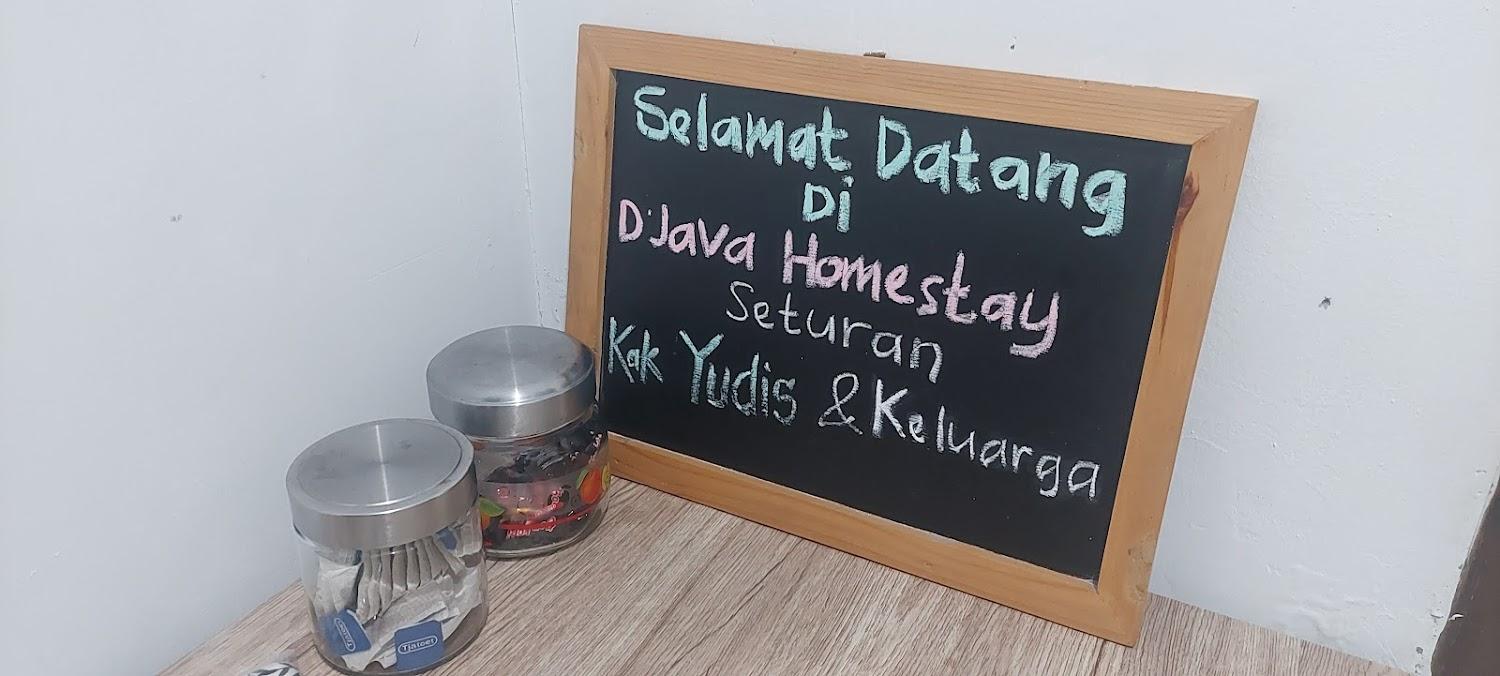 Selamat Datang
Di
D'Java Homestay
Seturan
Kak Yudis & Keluarga
Tjatoet
Tjatoet